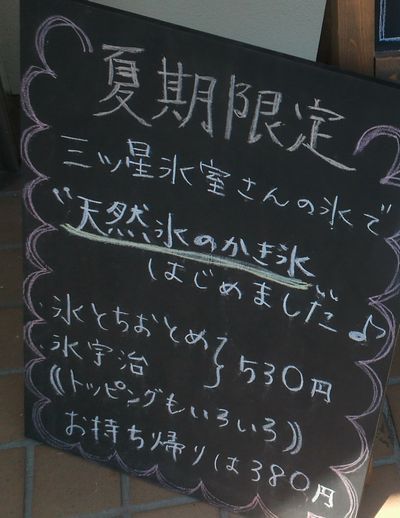 夏期限定
三ツ星氷室さんの氷で
"天然氷のかき氷"
はじめました♪
氷とちおとめ
氷宇治
}530円
((トッピングもいろいろ))
お持ち帰りは380円